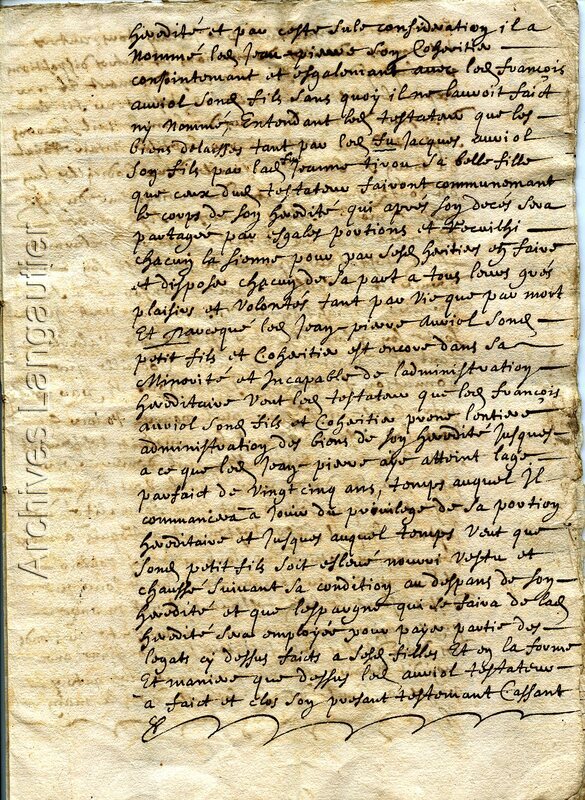 heredité et par ceste sule consideration il a
Nommé led Jean pierre son Coheritie
conjointemant et esgalemant avec led françois
auviol sond fils sans quoy il ne lauroit faict
ny Nommé, Entendant led testateur que les
biens delaisses tant par led fu Jacques auviol
son fils par lad fue Jeanne tivou sa belle fille
que ceux dud testateur fairont communemant
le corps de son heredité qui apres son deces sera
partagée par esgales portions et Recuilhi
chacun la sienne pour par sesd heritiers en faire
et disposer chacun de sa part a tous leurs gres
plaisirs et Volontes tant par vie que par mort
Et parceque led Jean pierre auviol sond
petit fils et Coheritie est encore dans sa
Minorité et Incapable de ladministration
hereditaire Veut led testateur que led françois
auviol sond fils et Coheritie prene lentiere
administration des biens de son heredité Jusques
a ce que led Jean pierre aye atteint lage
parfaict de Vingt cinq ans, temps auquel Il
commancera a Jouir du privilege de sa portion
hereditaire et Jusques auquel temps Veut que
sond petit fils soit eslevé nourri vestu et
chaussé suivant sa condition au despans de son
heredité et que lespargne qui se faira de lad
heredité sera employée pour payer partie des
legats cy dessus faicts a sesd filles Et en la forme
Et maniere que dessus led auviol testateur
a faict et clos son presant testemant Cassant
Archives Langautier